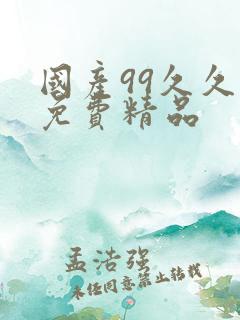 國產99久久
免費精品
孟浩强
未经同意禁止转载